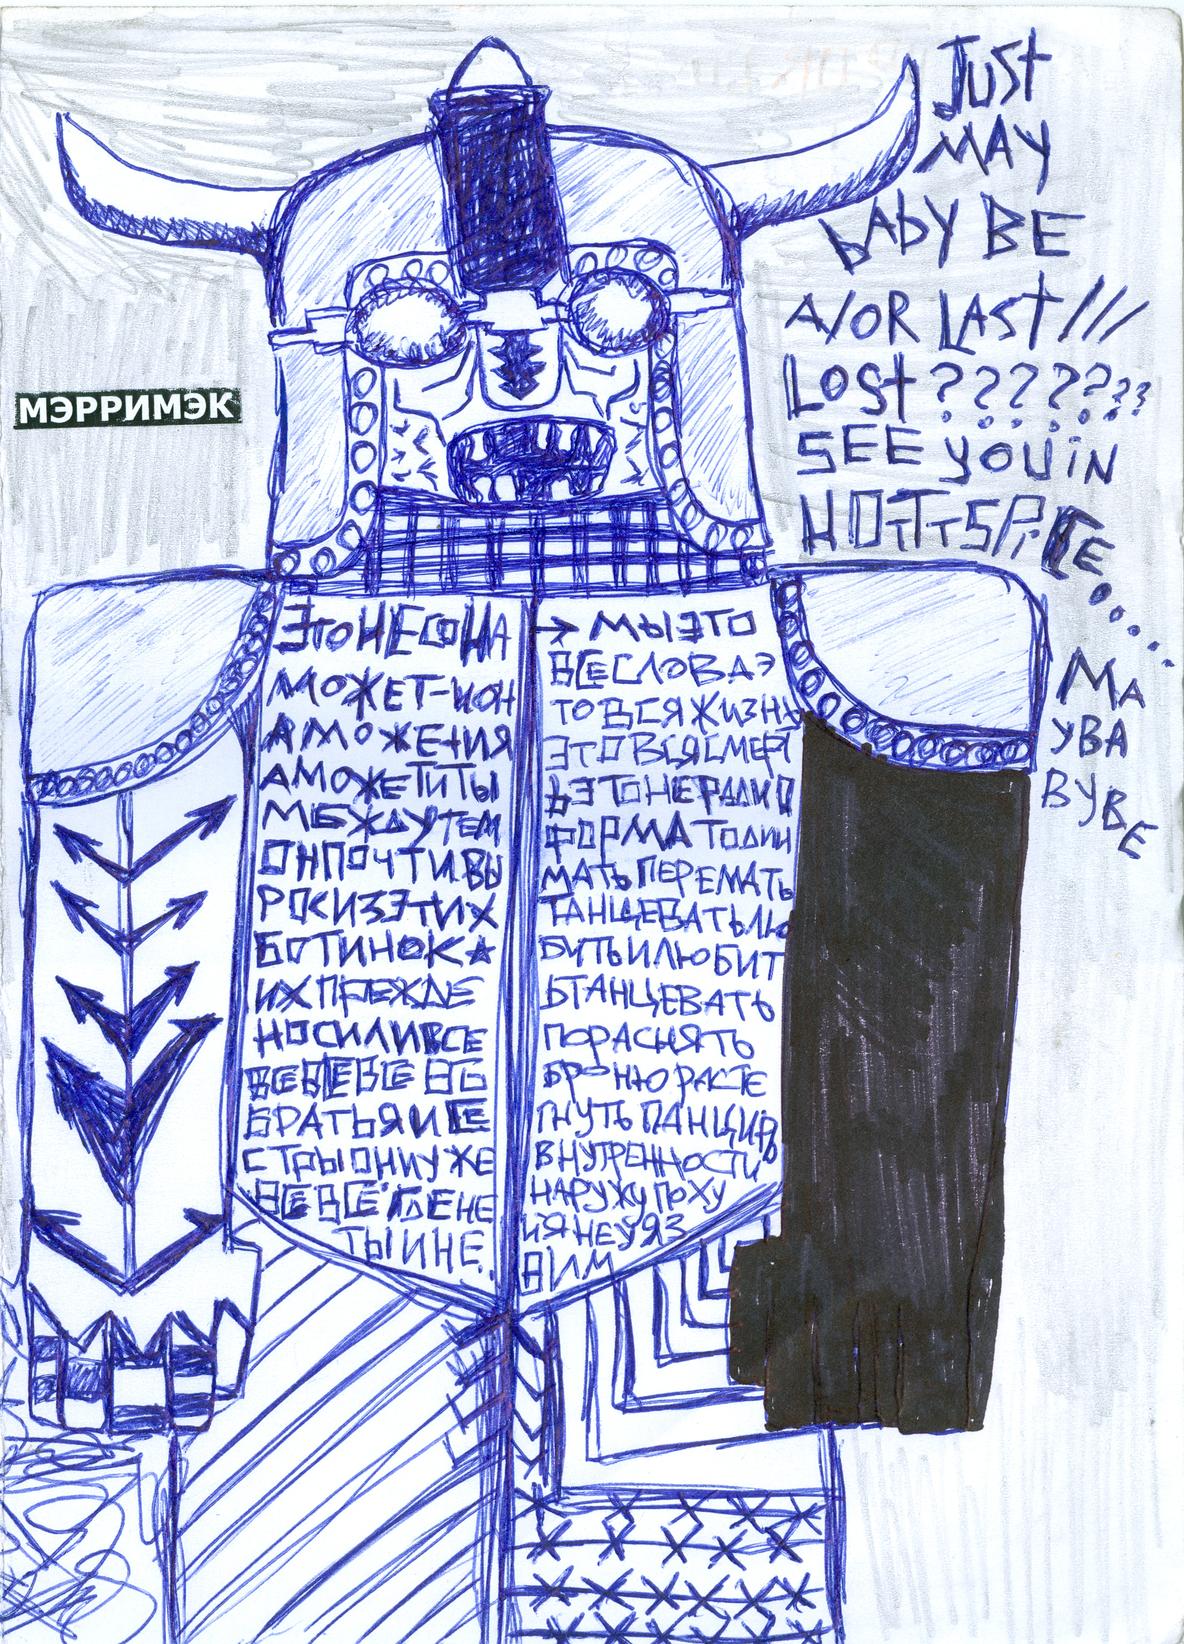 JUST
MAY
bAbY BE
A/OR LAST///
LOST ?????????
SEE YOU iN
HOTTTSPICE.....
МА
УВА
ВУВЕ
МЭРРИМЭК
ЭТО НЕ СОНА
МОЖЕТ-ИОН
АМОЖЕТИЯ
АМОЖЕТИТЫ
МЕЖДУТЕМ
ОНПОЧТИВЫ
РОСИЗЭТИХ
БОТИНОК★
ИХПРЕЖДЕ
НОСИЛИВСЕ
ВСЕВСЕВСЕ ЕГО
БРАТЬЯИСЕ
СТРЫОНИУЖЕ
ВСЕВСЕГДЕНЕ
ТЫИНЕ
→ МЫЭТО
ВСЕСЛОВАЭ
ТОВСЯЖИЗНЬ
ЭТОВСЯСМЕРТ
ЬЭТОНЕРАДИО
ФОРМАТОДИН
МАТЬПЕРЕМАТЬ
ТАНЦЕВАТЬЛЮ
БИТЬИЛЮБИТ
ЬТАНЦЕВАТЬ
ПОРАСНЯТЬ
БРОНЮРАССТЕ
ГНУТЬПАНЦИРЬ
ВНУТРЕННОСТИ
НАРУЖУПОХУ
ИЯНЕУЯЗ
ВИМ